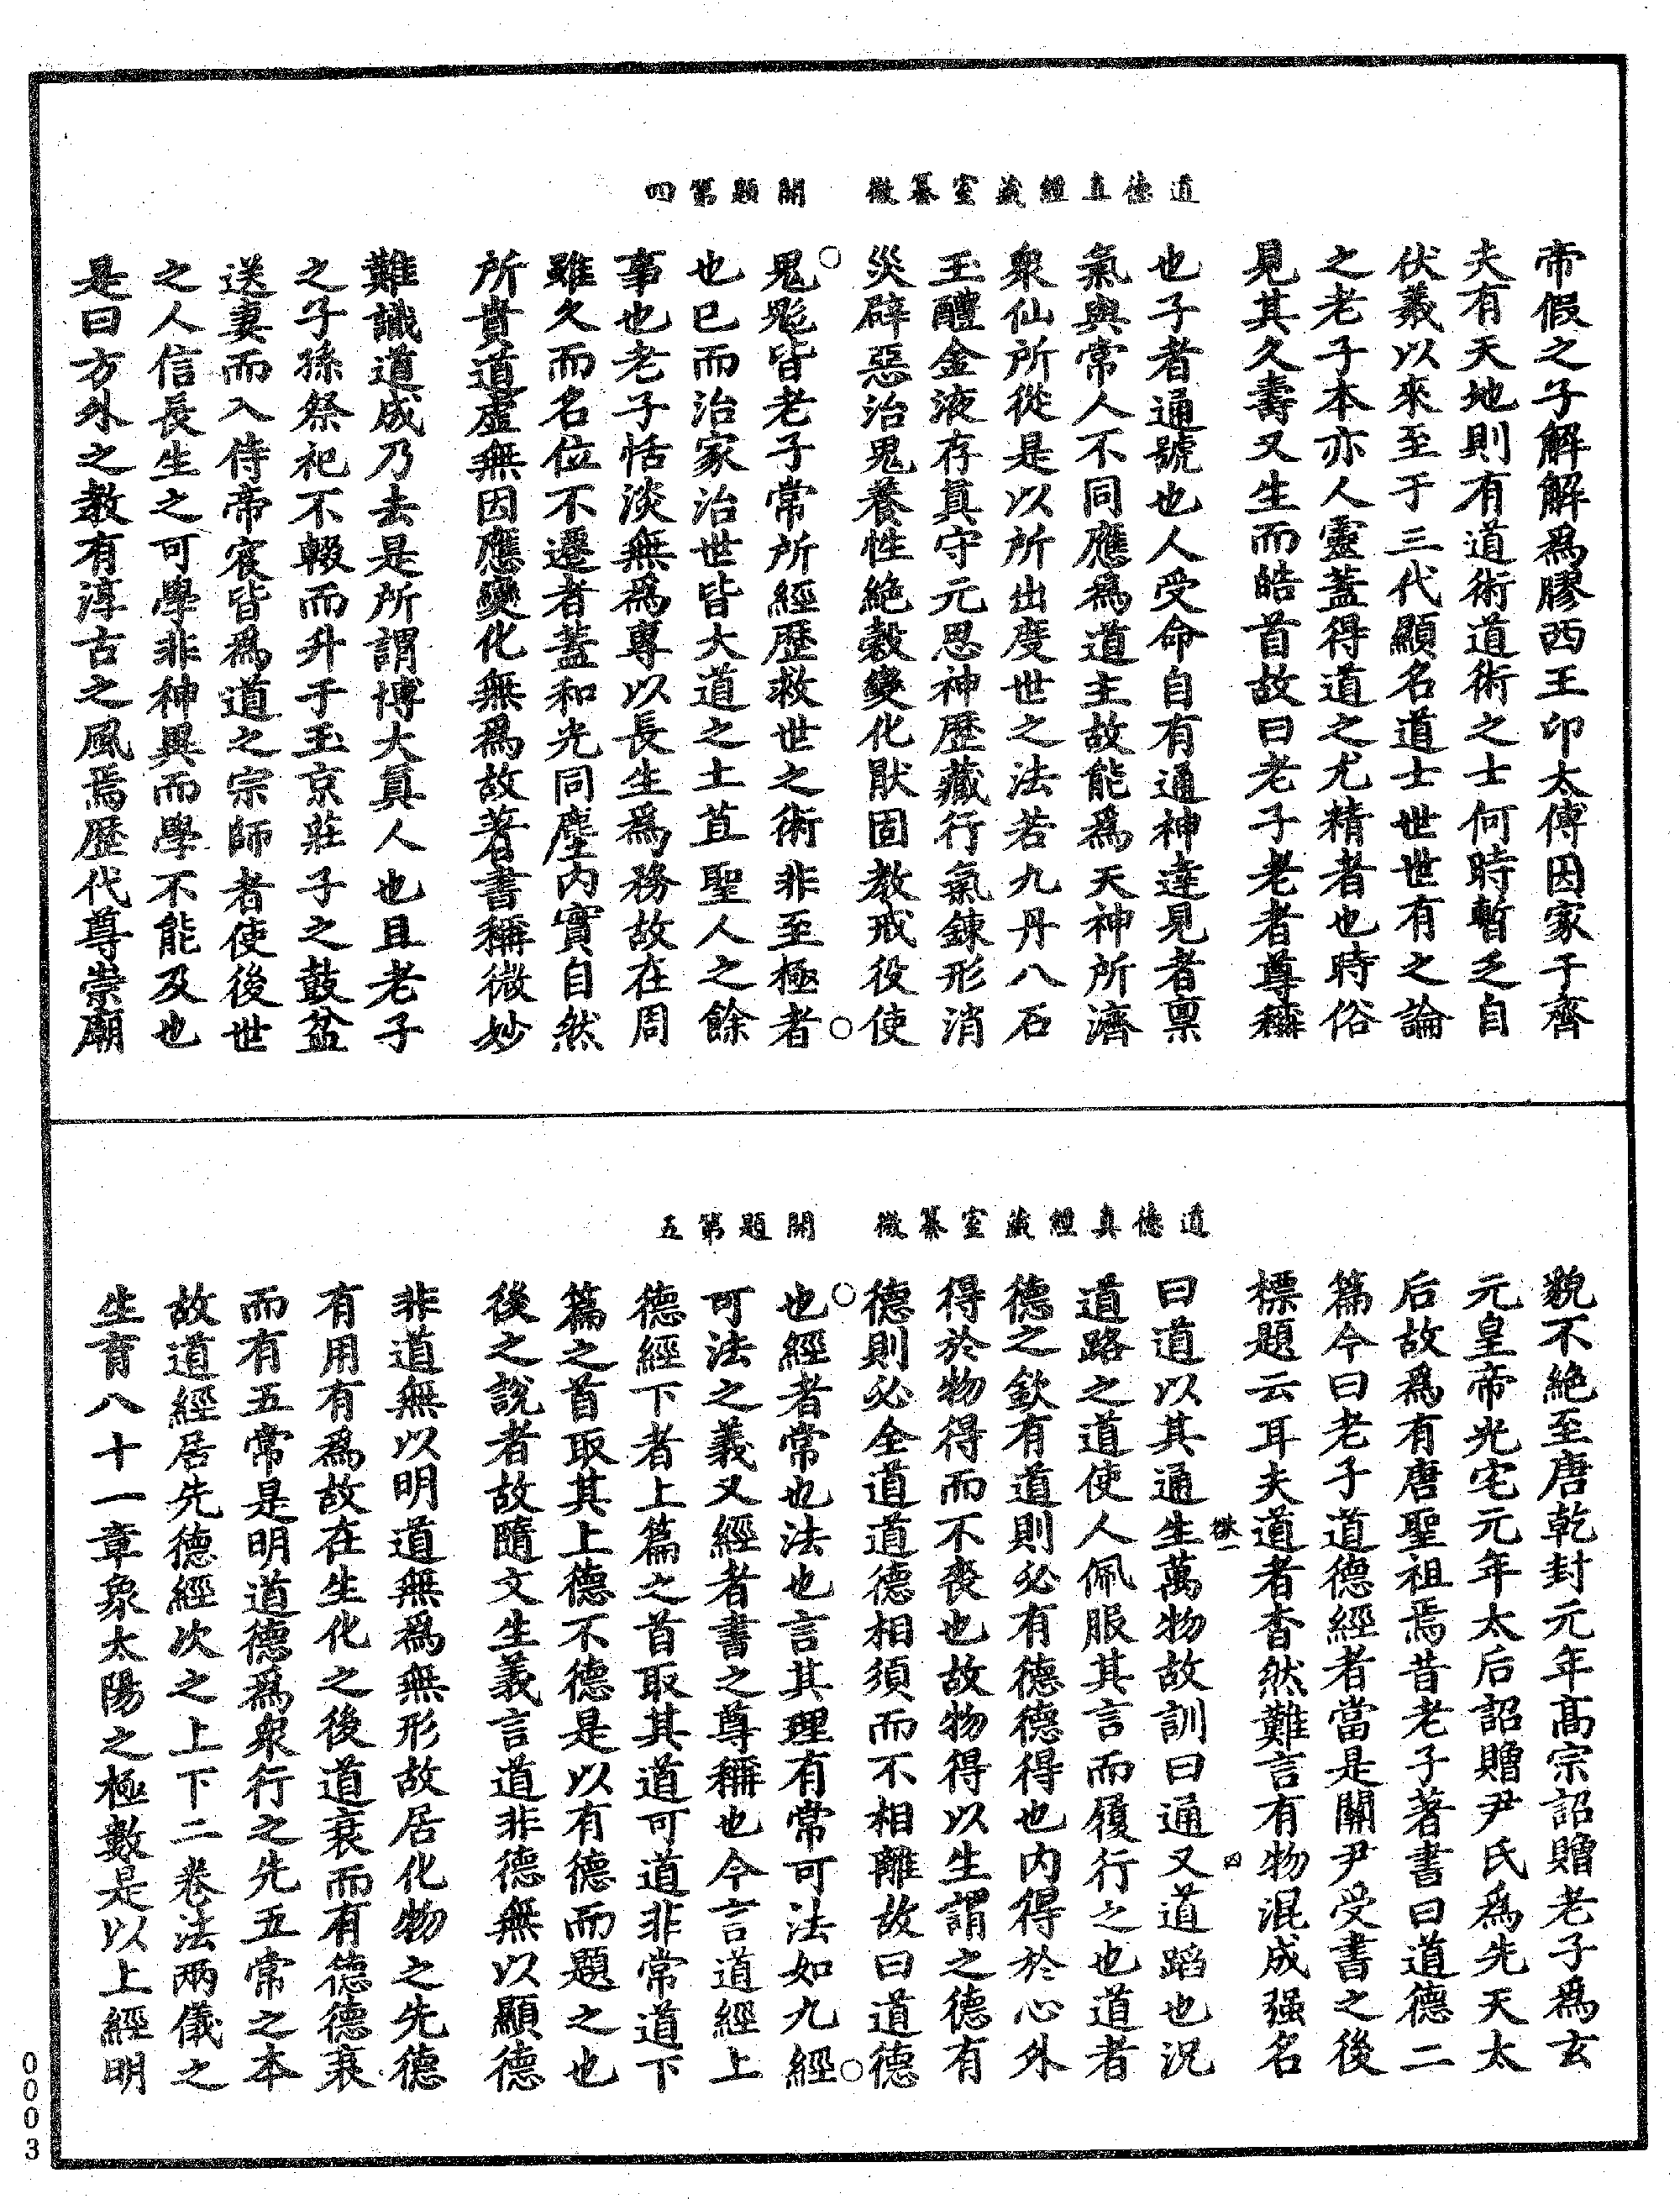 道德真經藏室纂微　開題第四
帝假之子解解為膠西王卬太傅因家于齊
夫有天地則有道術道術之士何時暫乏自
伏羲以來至于三代顯名道士世世有之論
之老子本亦人靈蓋得道之尤精者也時俗
見其久壽又生而皓首故曰老子老者尊稱
也子者通號也人受命自有通神達見者稟
氣與常人不同應為道主故能為天神所濟
眾仙所從是以所出度世之法若九丹八石
玉醴金液存真守元思神歷藏行氣鍊形消
災辟惡治鬼養性絕穀變化猒固教戒役使
鬼魅皆老子常所經歷救世之術非至極者
也已而治家治世皆大道之土苴聖人之餘
事也老子恬淡無為專以長生為務故在周
雖久而名位不遷者蓋和光同塵內實自然
所貴道虛無因應變化無為故著書稱微妙
難識道成乃去是所謂博大真人也且老子
之子孫祭祀不輟而升于玉京莊子之鼓盆
送妻而入侍帝宸皆為道之宗師者使後世
之人信長生之可學非神異而學不能及也
是曰方外之教有淳古之風焉歷代尊崇廟
道德真經藏室纂微　開題第五
貌不絕至唐乾封元年高宗詔贈老子為玄
元皇帝光宅元年太后詔贈尹氏為先天太
后故為有唐聖祖焉昔老子著書曰道德二
篇今曰老子道德經者當是關尹受書之後
標題云耳夫道者杳然難言有物混成强名
曰道以其通生萬物故訓曰通又道蹈也況
道路之道使人佩服其言而履行之也道者
德之欽有道則必有德德得也內得於心外
得於物得而不喪也故物得以生謂之德有
德則必全道道德相須而不相離故曰道德
也經者常也法也言其理有常可法如九經
可法之義又經者書之尊稱也今言道經上
德經下者上篇之首取其道可道非常道下
篇之首取其上德不德是以有德而題之也
後之說者故隨文生義言道非德無以顯德
非道無以明道無為無形故居化物之先德
有用有為故在生化之後道衰而有德德衰
而有五常是明道德為眾行之先五常之本
故道經居先德經次之上下二卷法兩儀之
生育八十一章象太陽之極數是以上經明
0003